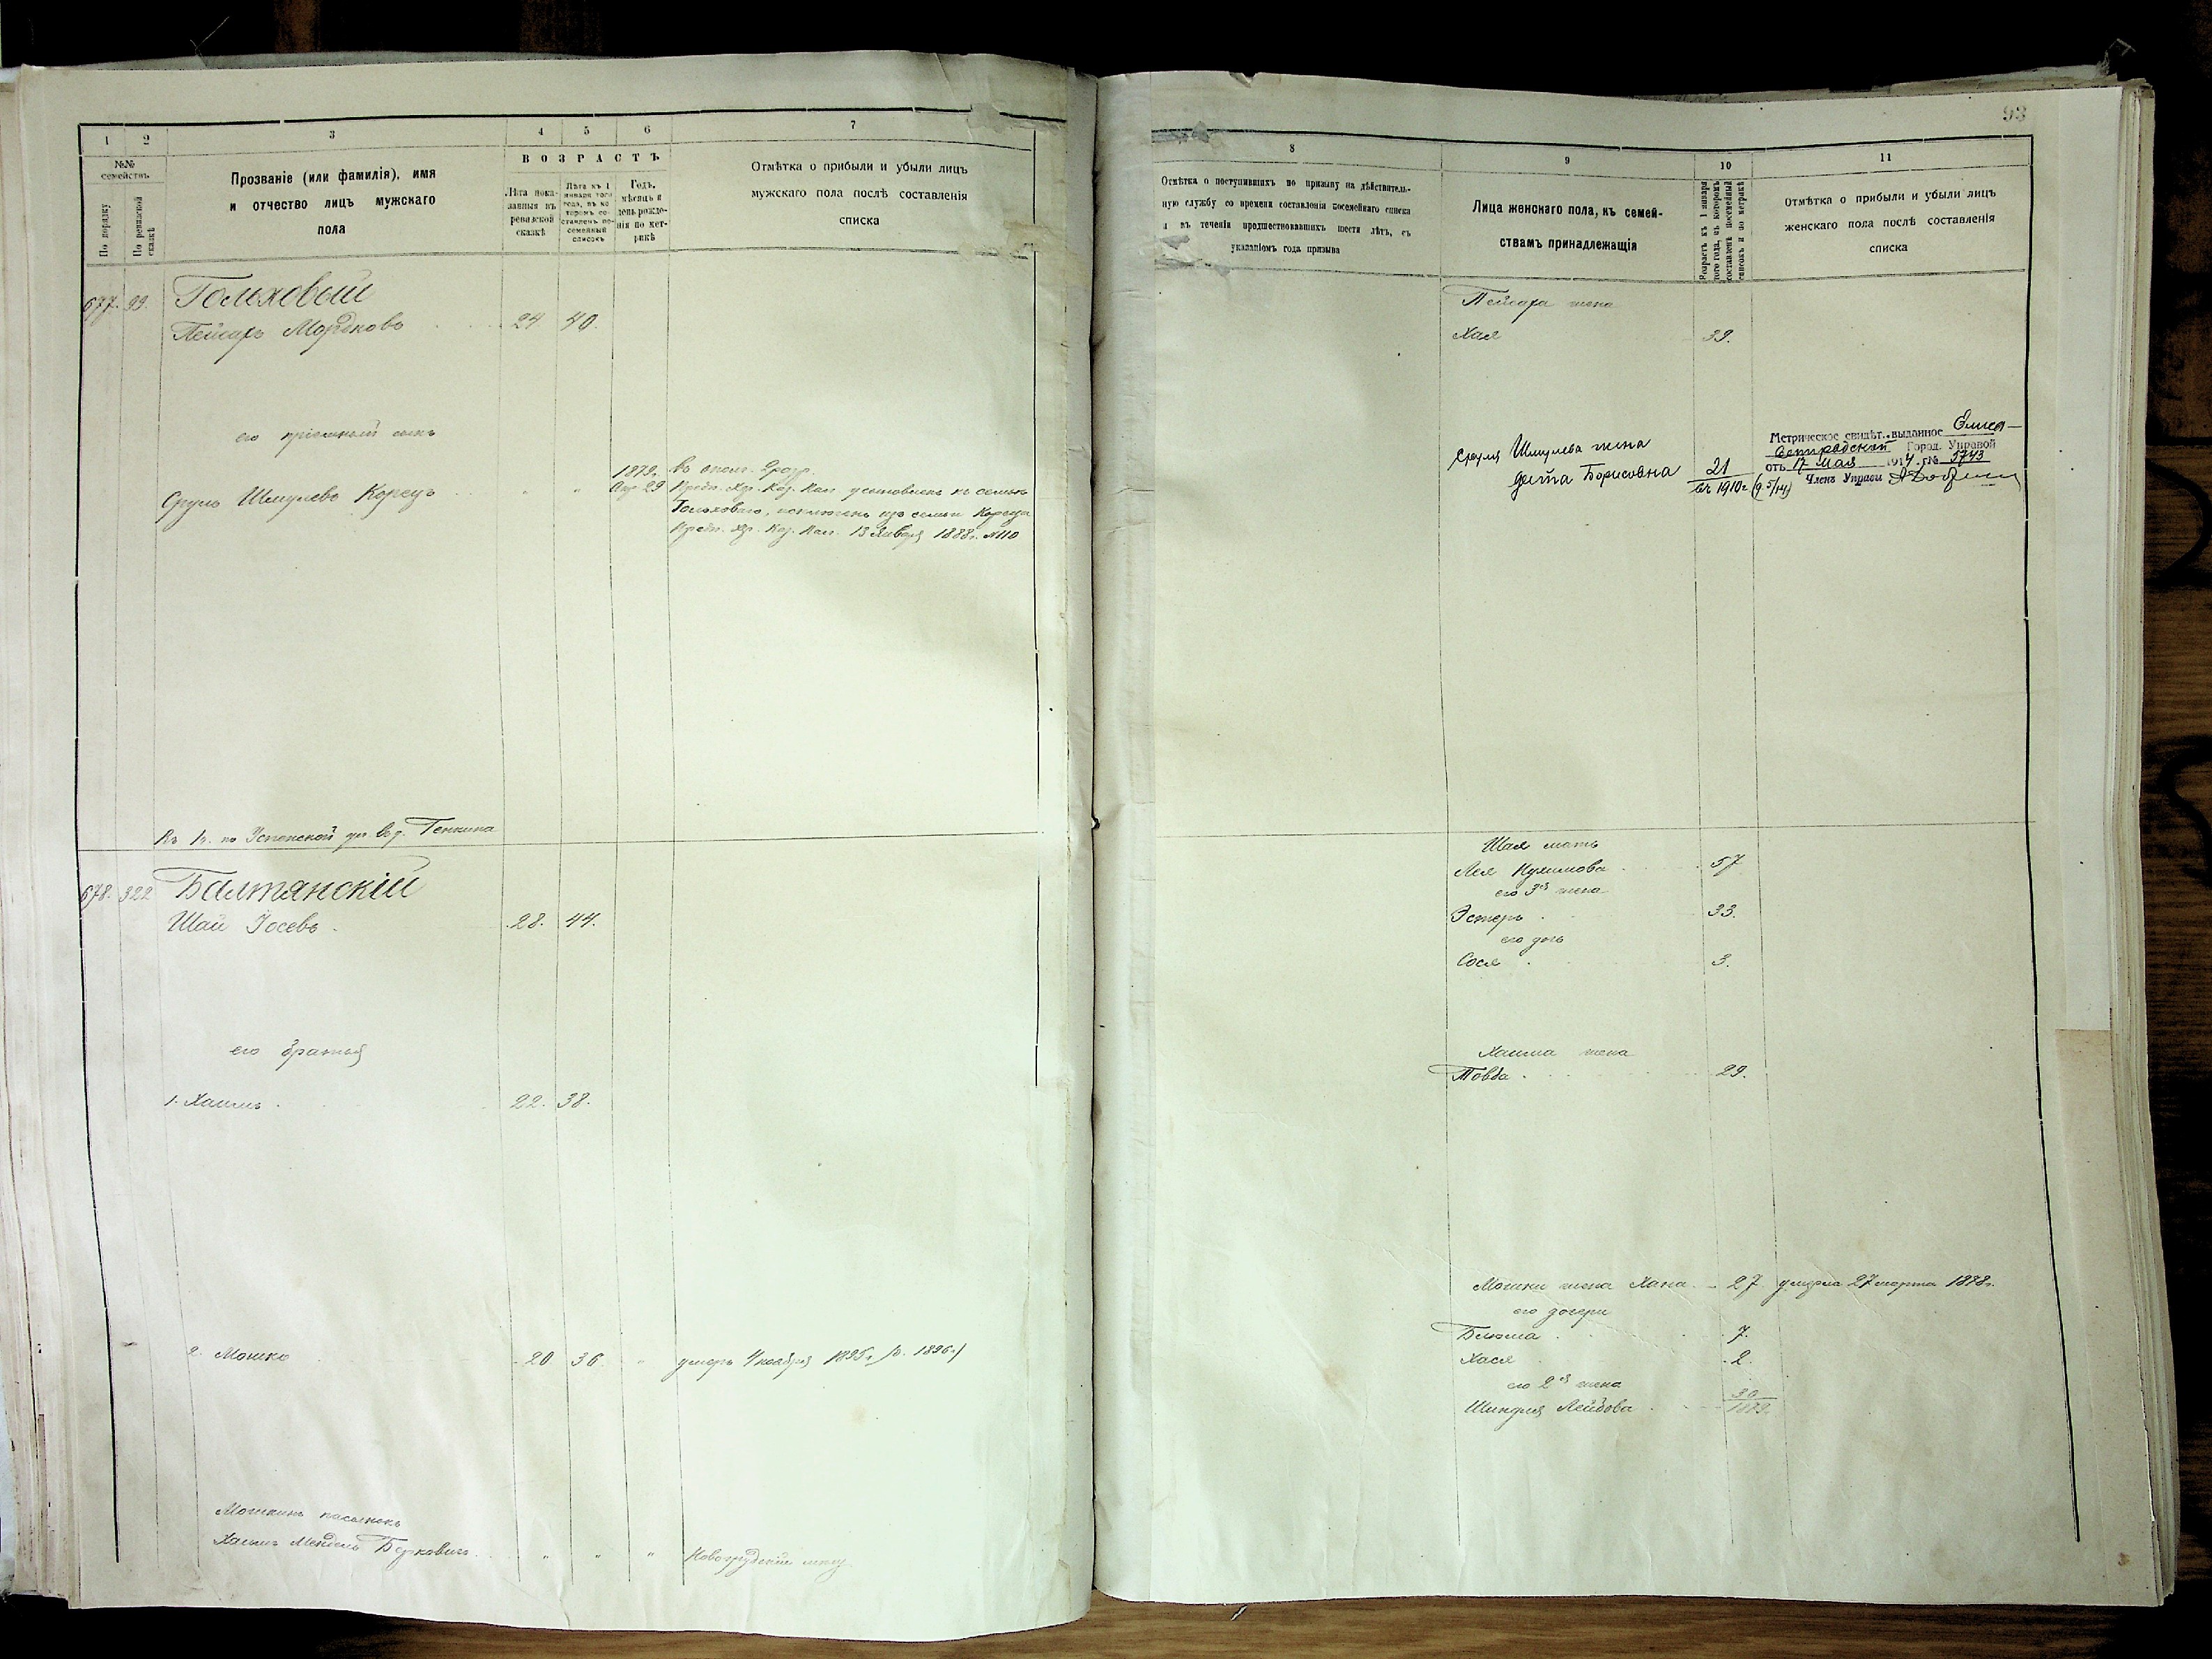 1 2 3 4 5 6 7
№№ семействъ
По порядку
По ревизской сказкѣ
Прозваніе (или фамилія), имя
и отчество лицъ мужскаго
пола
ВОЗРАСТЪ
Лѣта показанныя въ ревизской сказкѣ
Лѣта къ 1 января того года, въ которомъ составленъ посемейный списокъ
Годъ, мѣсяцъ и день рожденія по метрикѣ
Отмѣтка о прибыли и убыли лицъ
мужскаго пола послѣ составленія
списка
677. 99. Гольховый
Пейсахъ Мордковъ 24 40.
его пріемный сынъ
1872г. въ
Срулъ Шмулевъ Корецъ " " Апр 29
Гольховаго, исключенъ изъ семьи Корецъ
Предп. Хер. Каз. Пал. 13 Января 1888г. №110
по Успенской ул. въ д. Генкина
678. 322 Балтянскій
Шай Іосевъ 28. 44.
его братья
1. Хаимъ 22. 38.
2. Мошко 20 36. " умеръ 4 ноября 1895г. 1896г.)
Мошкинъ пасынокъ
Хаимъ Мендель Берковичъ " " " Новогрудскій мѣщ.
93
8 9 10 11
Отмѣтка о поступившихъ по призыву на дѣйствитель-
ную службу со времени составленія посемейнаго списка
и въ теченіи предшествовавшихъ шести лѣтъ, съ
указаніемъ года призыва
Лица женскаго пола, къ семей-
ствамъ принадлежащія
Возрастъ къ 1 января
того года, въ которомъ
составленъ посемейный
списокъ и по метрикѣ
Отмѣтка о прибыли и убыли лицъ
женскаго пола послѣ составленія
списка
Пейсаха жена
Хая 39.
Сруля Шмулева жена
Дейта Борисовна 21
въ 1910г (9 5/14)
Метрическое свидѣт. выданное Елиса-
ветградской Город. Управой
отъ 17 Мая 1914 г. № 5743
Членъ Управы
Шая мать
Лея Нухимова 57
его 3я жена
Эстеръ 33.
его дочь
Сося 3.
Хаима жена
Товба 29.
Мошки жена Хана 27 умерла 27 марта 1878г.
его дочери
Блюма 7.
Хася 2.
его 2я жена
Шифра Лейбова 30
1879.